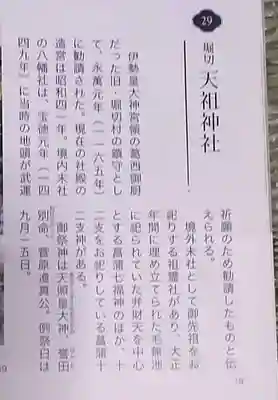 29
堀切 天祖神社
伊勢皇大神宮領の葛西御厨
だった旧・堀切村の鎮守とし
て、永萬元年(一一六五年)
に勧請された。現在の社殿の
造営は昭和四一年。境内末社
の八幡社は、宝徳元年(一四
四九年)に当時の地頭が武運
祈願のため勧請したものと伝
えられる。
境外末社として御先祖をお
祀りする祖霊社があり、大正
年間に埋め立てられた毛無池
に祀られていた弁財天を中心
とする菖蒲七福神のほか、十
二支をお祀りしている菖蒲十
二支神がある。
御祭神は天照皇大神、誉田
別命、菅原道真公。例祭日は
九月一五日。